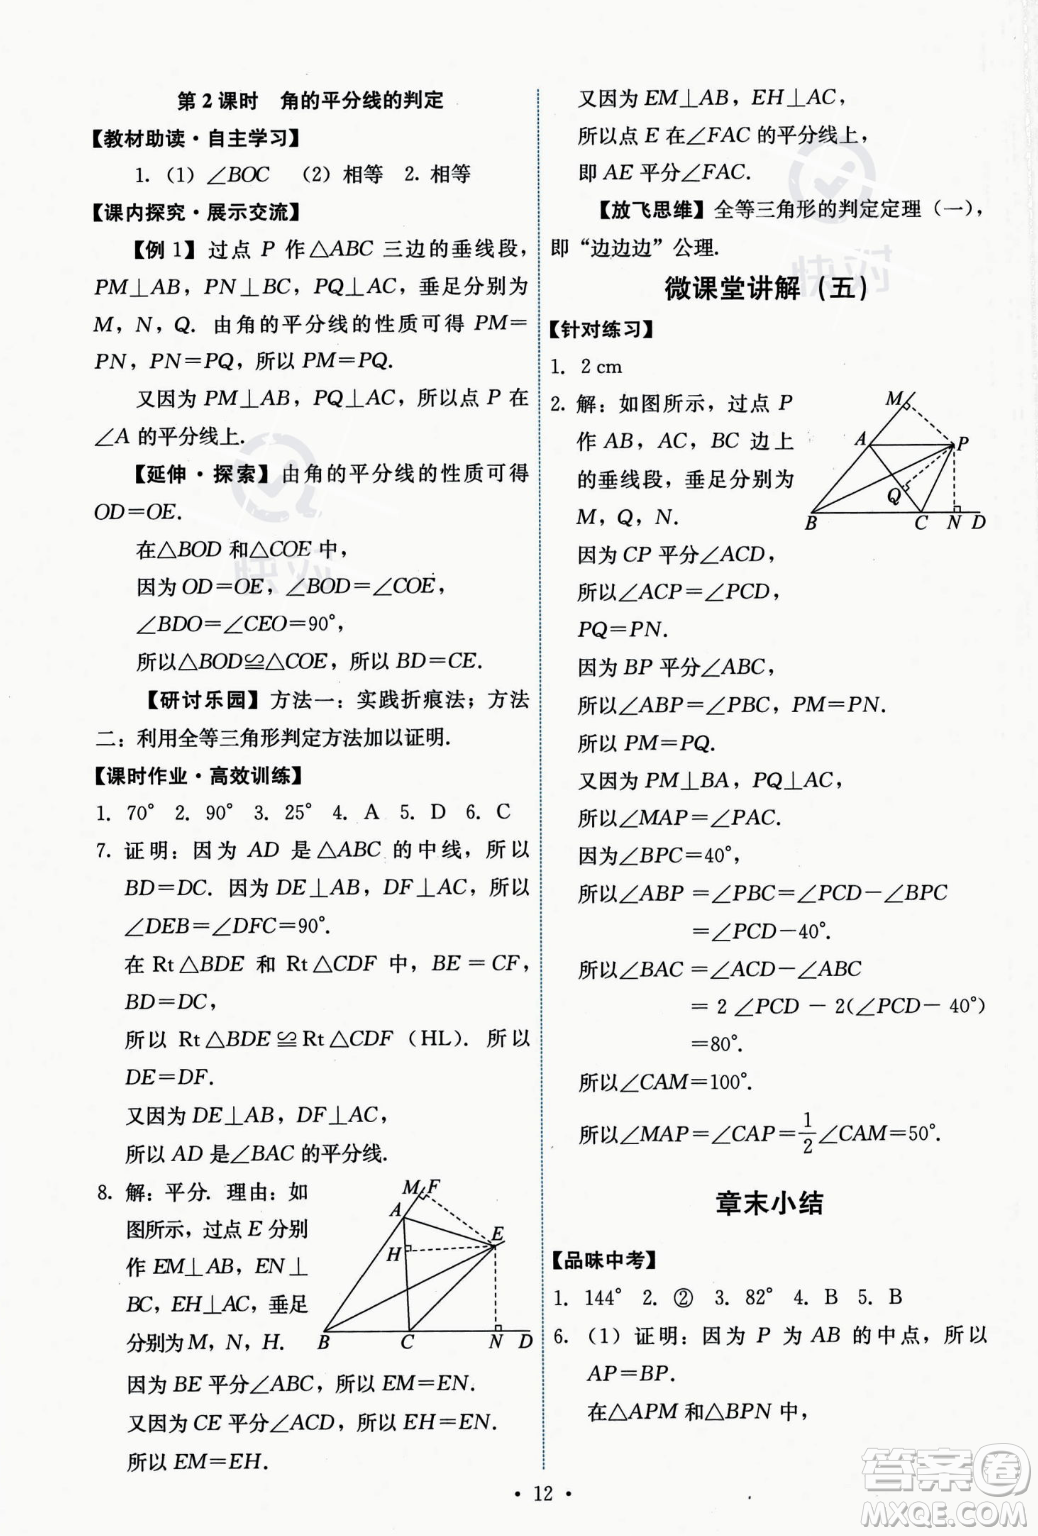 第2课时 角的平分线的判定
【教材助读·自主学习】
1. (1) ∠BOC (2) 相等 2. 相等
【课内探究·展示交流】
【例1】过点 P 作△ABC 三边的垂线段，
PM⊥AB，PN⊥BC，PQ⊥AC，垂足分别为
M，N，Q. 由角的平分线的性质可得 PM=
PN，PN=PQ，所以 PM=PQ.
又因为 PM⊥AB，PQ⊥AC，所以点 P 在
∠A 的平分线上.
【延伸·探索】由角的平分线的性质可得
OD=OE.
在△BOD 和△COE 中，
因为 OD=OE，∠BOD=∠COE，
∠BDO=∠CEO=90°，
所以△BOD≌△COE，所以 BD=CE.
【研讨乐园】方法一：实践折痕法；方法
二：利用全等三角形判定方法加以证明.
【课时作业·高效训练】
1. 70° 2. 90° 3. 25° 4. A 5. D 6. C
7. 证明：因为 AD 是△ABC 的中线，所以
BD=DC. 因为 DE⊥AB，DF⊥AC，所以
∠DEB=∠DFC=90°.
在 Rt△BDE 和 Rt△CDF 中，BE=CF，
BD=DC，
所以 Rt△BDE≌Rt△CDF（HL）. 所以
DE=DF.
又因为 DE⊥AB，DF⊥AC，
所以 AD 是∠BAC 的平分线.
8. 解：平分. 理由：如
图所示，过点 E 分别
作 EM⊥AB，EN⊥
BC，EH⊥AC，垂足
分别为 M，N，H.
M F
A
E
H
B C N D
因为 BE 平分∠ABC，所以 EM=EN.
又因为 CE 平分∠ACD，所以 EH=EN.
所以 EM=EH.
又因为 EM⊥AB，EH⊥AC，
所以点 E 在∠FAC 的平分线上，
即 AE 平分∠FAC.
【放飞思维】全等三角形的判定定理（一），
即“边边边”公理.
微课堂讲解（五）
【针对练习】
1. 2 cm
2. 解：如图所示，过点 P
作 AB，AC，BC 边上
的垂线段，垂足分别为
M，Q，N.
M
A P
Q
B C N D
因为 CP 平分∠ACD，
所以∠ACP=∠PCD，
PQ=PN.
因为 BP 平分∠ABC，
所以∠ABP=∠PBC，PM=PN.
所以 PM=PQ.
又因为 PM⊥BA，PQ⊥AC，
所以∠MAP=∠PAC.
因为∠BPC=40°，
所以∠ABP=∠PBC=∠PCD-∠BPC
=∠PCD-40°.
所以∠BAC=∠ACD-∠ABC
=2∠PCD-2(∠PCD-40°)
=80°.
所以∠CAM=100°.
所以∠MAP=∠CAP=1/2∠CAM=50°.
章末小结
【品味中考】
1. 144° 2. ② 3. 82° 4. B 5. B
6. (1) 证明：因为 P 为 AB 的中点，所以
AP=BP.
在△APM 和△BPN 中，
· 12 ·
快对
快对
答案圈
MXQE.COM